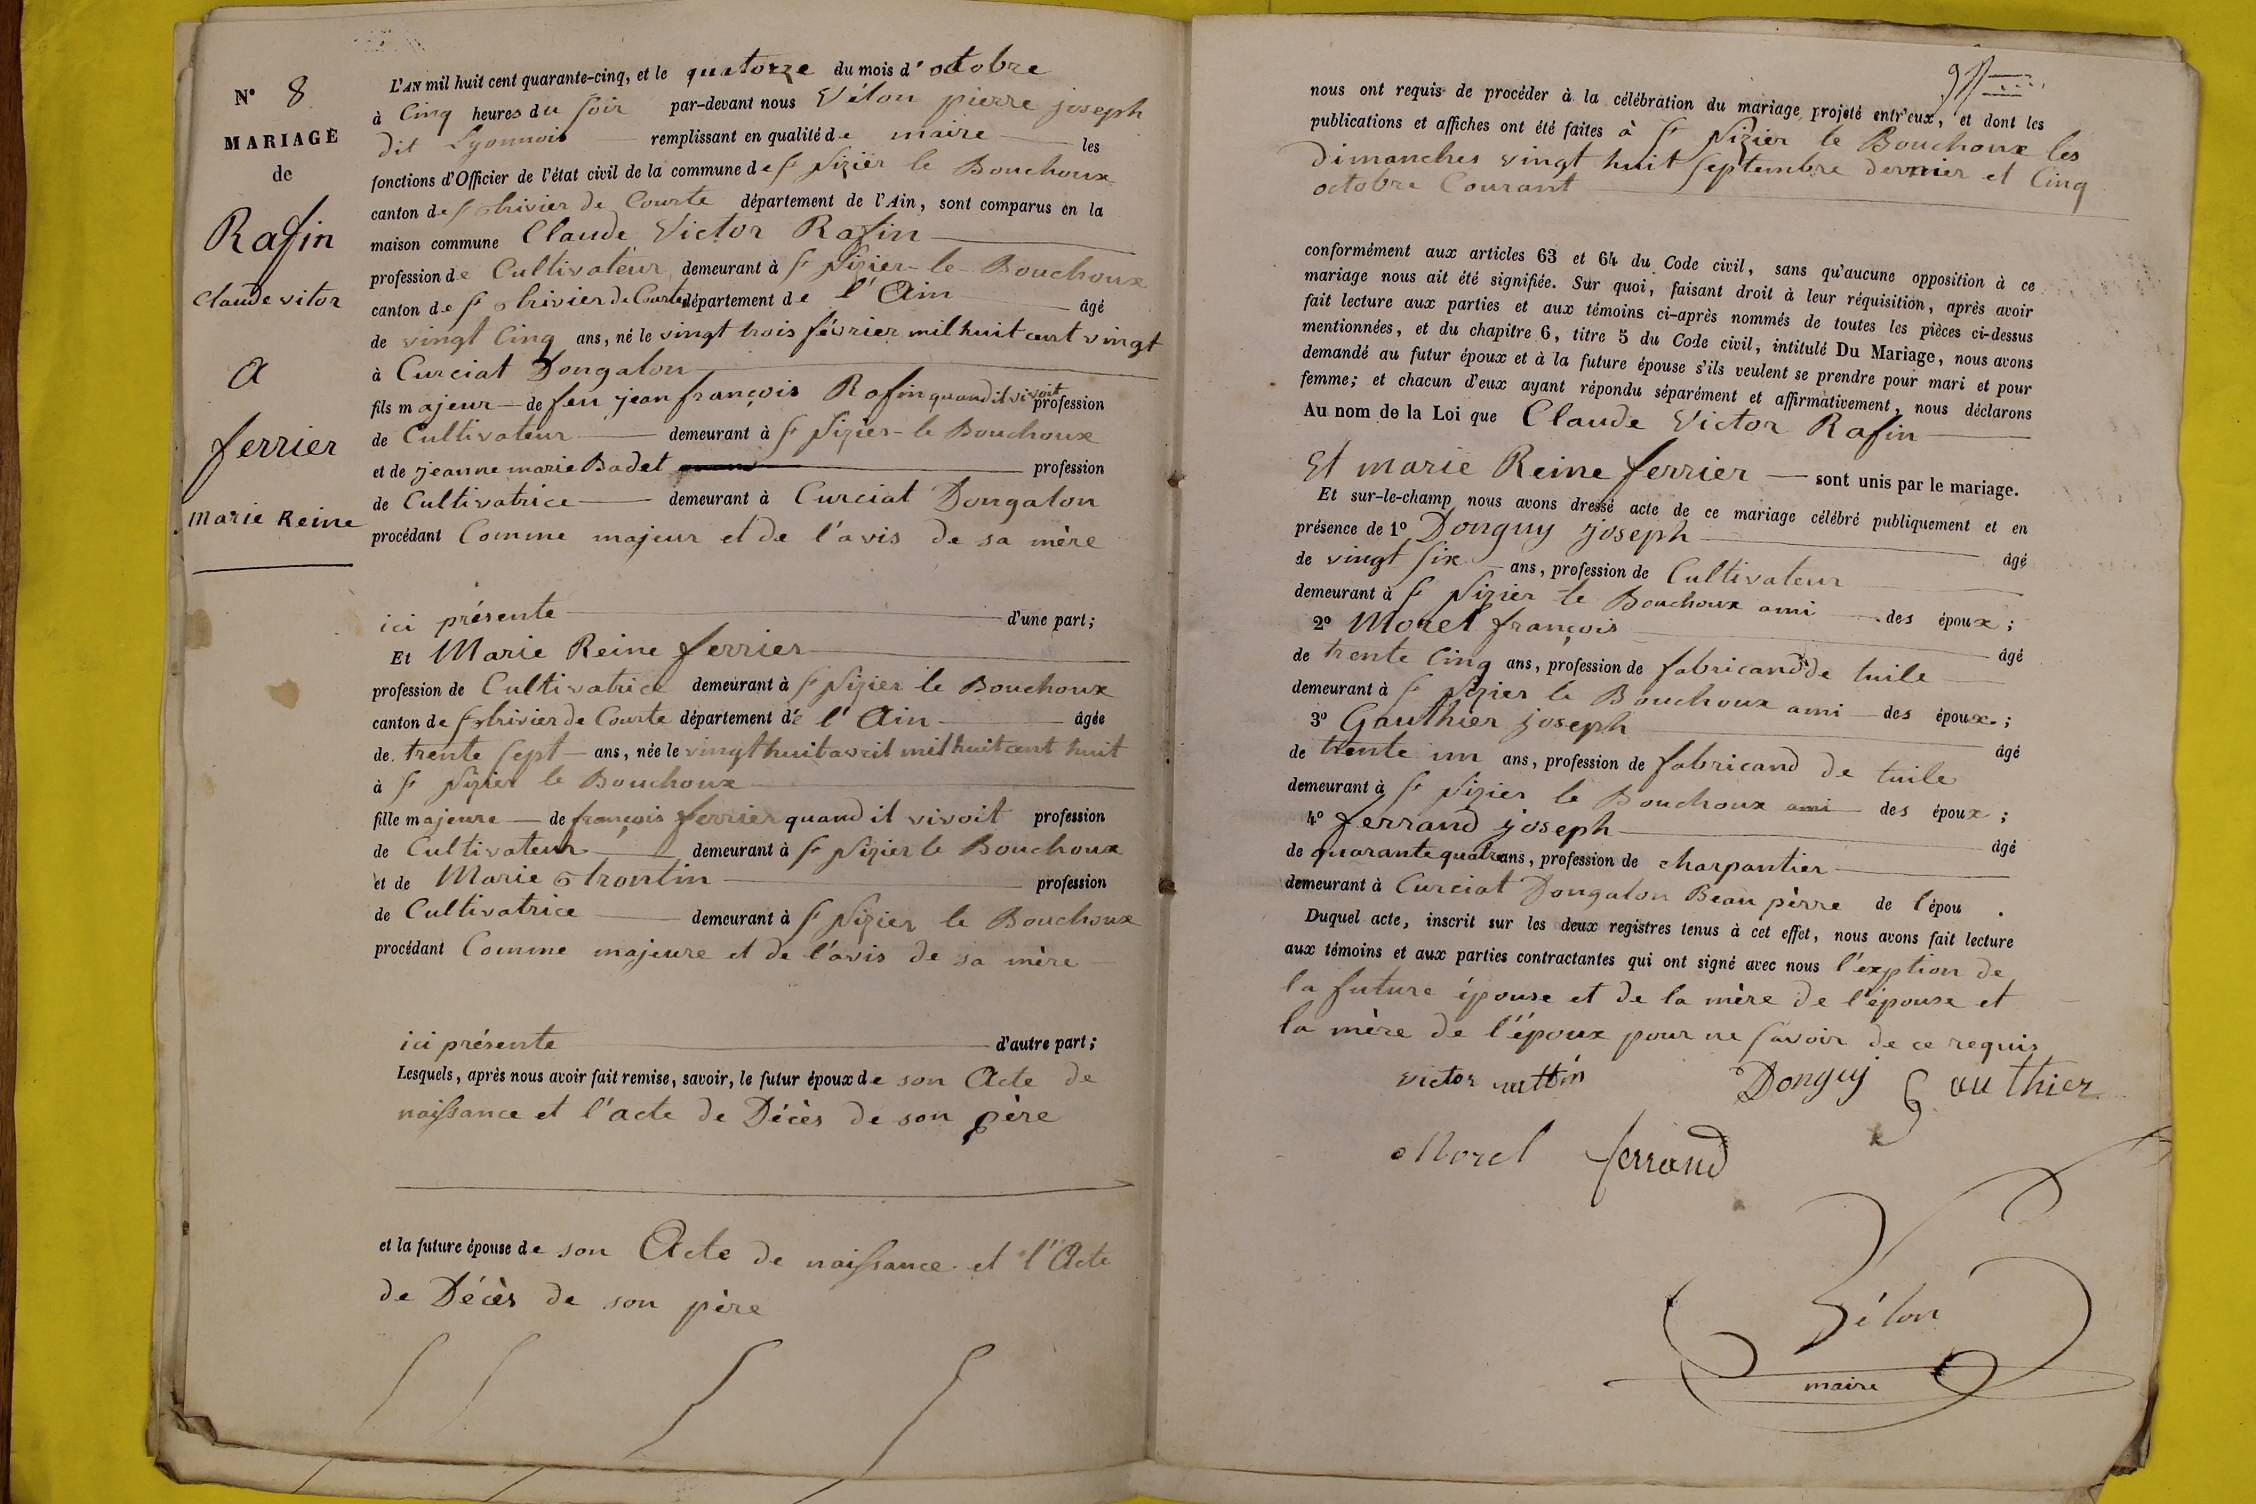 N° 8
MARIAGE
de
Rafin
Claude vitor
a
ferrier
Marie Reine
L'AN mil huit cent quarante-cinq, et le quatorze du mois d'octobre
à Cinq heures du soir par-devant nous Vélon pierre joseph
dit Lyonnois remplissant en qualité de maire les
fonctions d'Officier de l'état civil de la commune de St Nizier le Bouchoux
canton de St trivier de Courte département de l'Ain, sont comparus en la
maison commune Claude Victor Rafin
profession de Cultivateur demeurant à St Nizier le Bouchoux
canton de St trivier de Courte département de l'Ain âgé
de vingt Cinq ans, né le vingt trois février mil huit cent vingt
à Curciat Dongalon
fils majeur de feu jean françois Rafin quand il vivoit profession
de Cultivateur demeurant à St Nizier le Bouchoux
et de jeanne marie Badet profession
de Cultivatrice demeurant à Curciat Dongalon
procédant Comme majeur et de l'avis de sa mère
ici présente d'une part;
Et Marie Reine ferrier
profession de Cultivatrice demeurant à St Nizier le Bouchoux
canton de St trivier de Courte département de l'Ain âgée
de trente sept ans, née le vingt huit avril mil huit cent huit
à St Nizier le Bouchoux
fille majeure de françois ferrier quand il vivoit profession
de Cultivateur demeurant à St Nizier le Bouchoux
et de Marie trontin profession
de Cultivatrice demeurant à St Nizier le Bouchoux
procédant Comme majeure et de l'avis de sa mère
ici présente d'autre part;
Lesquels, après nous avoir fait remise, savoir, le futur époux de son Acte de
naissance et l'acte de Décès de son père
et la future épouse de son Acte de naissance et l'Acte
de Décès de son père
nous ont requis de procéder à la célébration du mariage projeté entr'eux, et dont les
publications et affiches ont été faites à St Nizier le Bouchoux les
dimanches vingt huit septembre dernier et Cinq
octobre Courant
conformément aux articles 63 et 64 du Code civil, sans qu'aucune opposition à ce
mariage nous ait été signifiée. Sur quoi, faisant droit à leur réquisition, après avoir
fait lecture aux parties et aux témoins ci-après nommés de toutes les pièces ci-dessus
mentionnées, et du chapitre 6, titre 5 du Code civil, intitulé Du Mariage, nous avons
demandé au futur époux et à la future épouse s'ils veulent se prendre pour mari et pour
femme; et chacun d'eux ayant répondu séparément et affirmativement, nous déclarons
Au nom de la Loi que Claude Victor Rafin
Et marie Reine ferrier sont unis par le mariage.
Et sur-le-champ nous avons dressé acte de ce mariage célébré publiquement et en
présence de 1° Donguy joseph âgé
de vingt six ans, profession de Cultivateur
demeurant à St Nizier le Bouchoux ami des époux;
2° Morel françois âgé
de trente Cinq ans, profession de fabricand de tuile
demeurant à St Nizier le Bouchoux ami des époux;
3° Gauthier joseph âgé
de trente un ans, profession de fabricand de tuile
demeurant à St Nizier le Bouchoux ami des époux;
4° ferrand joseph âgé
de quarante quatre ans, profession de charpantier
demeurant à Curciat Dongalon Beau pèrre de l'épou .
Duquel acte, inscrit sur les deux registres tenus à cet effet, nous avons fait lecture
aux témoins et aux parties contractantes qui ont signé avec nous l'exption de
la future épouse et de la mère de l'épouse et
la mère de l'époux pour ne savoir de ce requis
victor Donguy Gauthier
Morel ferrand
Vélon
maire